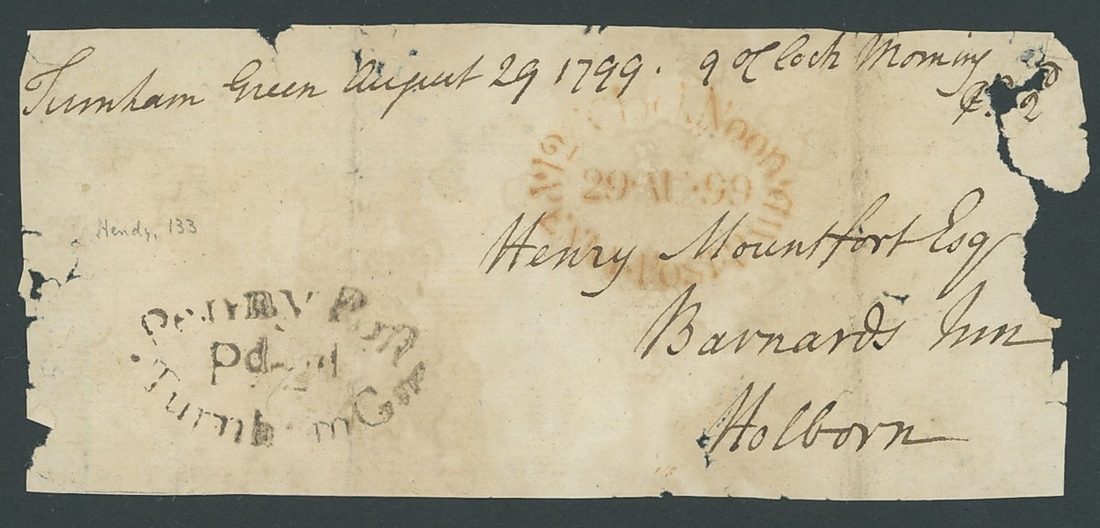 Turnham Green August 29 1799. 9 o'Clock Morning
2
12 o'Clock Noon
29 AU 99
Henry Mountfort Esq
Hendy, 133
Barnards Inn
Pd
Turnham Gr
Holborn